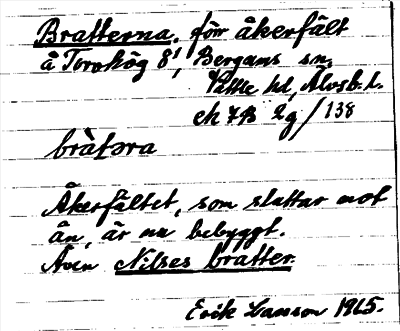 Bratterna, förr åkerfält
å Torskög 8¹, Bergums sn,
Vättle hd, Älvsb. l.
ek 7B 2g/138
bràtəra
Åkerfältet, som sluttar mot
ån, är nu bebyggt.
Även Nilses bratter.
Erik Larsson 1965.